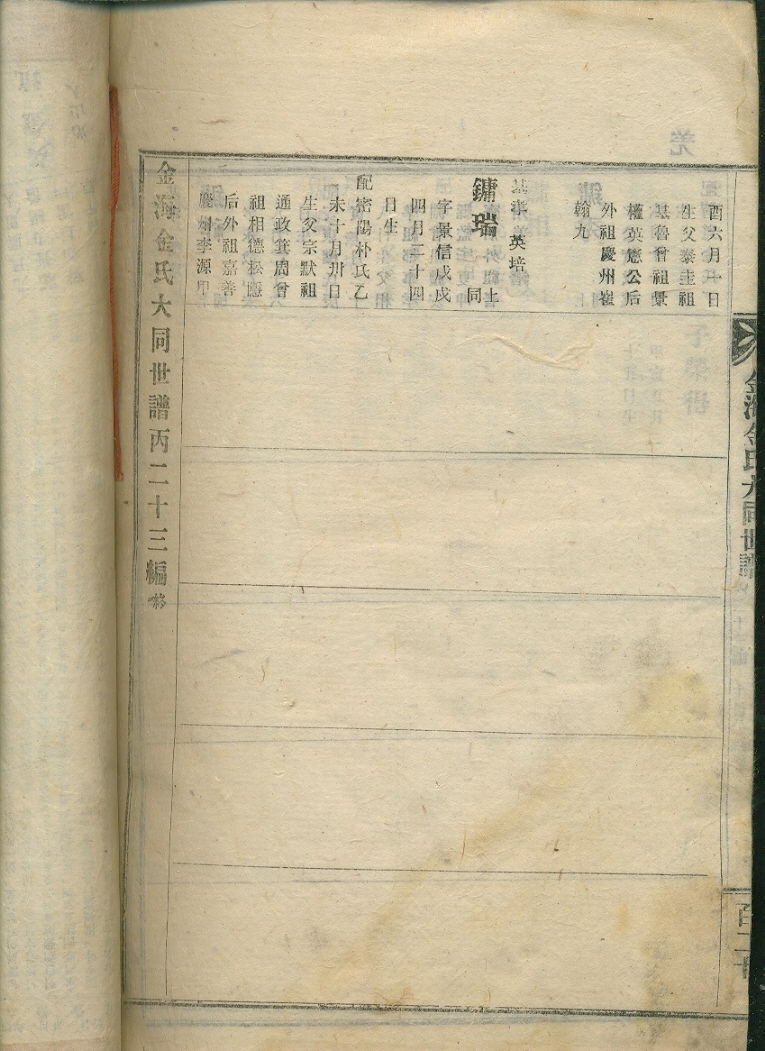 酉六月一日
生父泰圭祖
基魯曾祖景
權英憲公后
外祖慶州崔
翰九
英培
鏞瑞
同上
字景信戊戌
四月二十四
日生
配密陽朴氏乙
未十月卅日
生父宗默祖
通政箕周曾
祖相德松隱
后外祖嘉善
慶州李源甲
金海金氏大同世譜丙二十三編終
金海金氏大同世譜